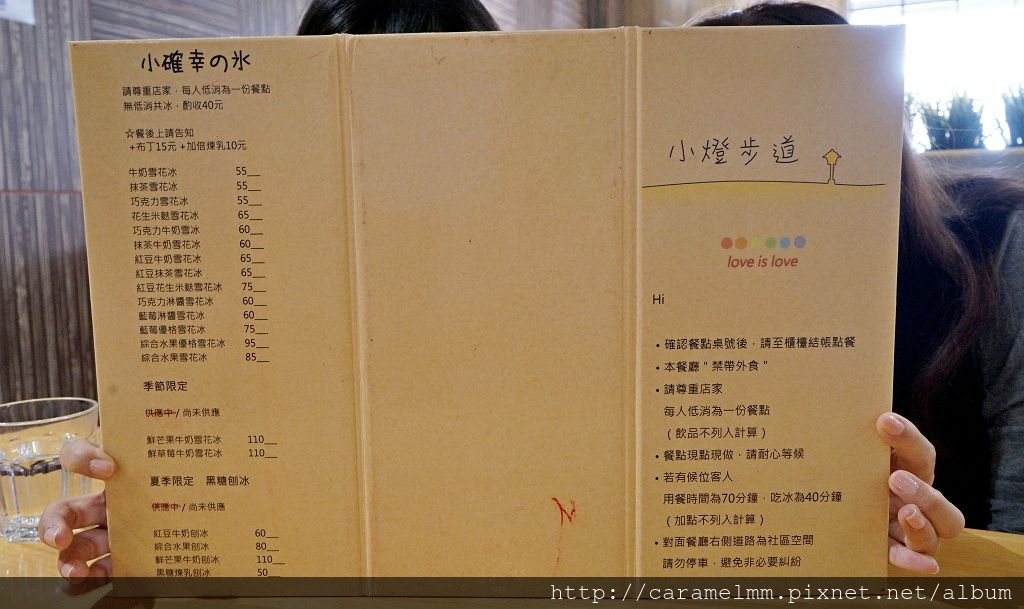 小確幸の氷
請尊重店家，每人低消為一份餐點
無低消共冰，酌收40元
☆餐後上請告知
+布丁15元 +加倍煉乳10元
牛奶雪花冰 55__
抹茶雪花冰 55__
巧克力雪花冰 55__
花生米麩雪花冰 65__
巧克力牛奶雪花冰 60__
抹茶牛奶雪花冰 60__
紅豆牛奶雪花冰 65__
紅豆抹茶雪花冰 65__
紅豆花生米麩雪花冰 75__
巧克力淋醬雪花冰 60__
藍莓淋醬雪花冰 60__
藍莓優格雪花冰 75__
綜合水果優格雪花冰 95__
綜合水果雪花冰 85__
季節限定
供應中 / 尚未供應
鮮芒果牛奶雪花冰 110__
鮮草莓牛奶雪花冰 110__
夏季限定 黑糖刨冰
供應中 / 尚未供應
紅豆牛奶刨冰 60__
綜合水果刨冰 80__
鮮芒果牛奶刨冰 110__
黑糖煉乳刨冰 50__
小燈步道
love is love
Hi
• 確認餐點桌號後，請至櫃檯結帳點餐
• 本餐廳 " 禁帶外食 "
• 請尊重店家
每人低消為一份餐點
( 飲品不列入計算 )
• 餐點現點現做，請耐心等候
• 若有候位客人
用餐時間為70分鐘，吃冰為40分鐘
( 加點不列入計算 )
• 對面餐廳右側道路為社區空間
請勿停車，避免非必要糾紛
http://caramelmm.pixnet.net/album